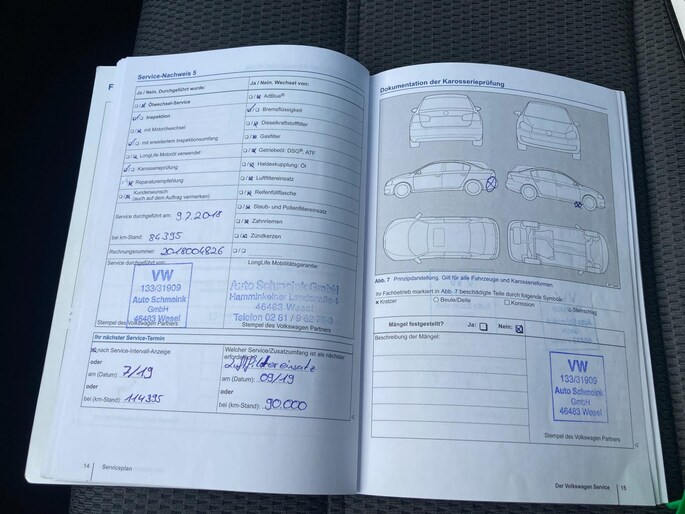 Service-Nachweis 5
Ja / Nein. Durchgeführt wurde:
Ölwechsel-Service
Inspektion
mit Motorölwechsel
mit erweitertem Inspektionsumfang
LongLife Motoröl verwendet
Karosserieprüfung
Reparaturempfehlung
Kundenwunsch
(auch auf dem Auftrag vermerken)
Service durchgeführt am: 9.7.2018
bei km-Stand: 84395
Rechnungsnummer: 2018004826
Service durchgeführt von:
VW
133/31909
Auto Schmeink
GmbH
46483 Wesel
Stempel des Volkswagen Partners
Ja / Nein. Wechsel von:
AdBlue®
Bremsflüssigkeit
Dieselkraftstofffilter
Gasfilter
Getriebeöl: DSG®, ATF
Haldexkupplung: Öl
Luftfiltereinsatz
Reifenfüllflasche
Staub- und Pollenfiltereinsatz
Zahnriemen
Zündkerzen
LongLife Mobilitätsgarantie:
Auto Schmeink GmbH
Hamminkelner Landstraße
46483 Wesel
Telefon 02 81 /
Stempel des Volkswagen Partners
Ihr nächster Service-Termin
nach Service-Intervall-Anzeige
oder
am (Datum): 7/19
oder
bei (km-Stand): 114395
Welcher Service/Zusatzumfang ist als nächster
erforderlich
Luftfiltereinsatz
am (Datum): 09/19
oder
bei (km-Stand): 90.000
14 Serviceplan
Dokumentation der Karosserieprüfung
Abb. 7 Prinzipdarstellung. Gilt für alle Fahrzeuge und Karosserieformen.
Ihr Fachbetrieb markiert in Abb. 7 beschädigte Teile durch folgende Symbole:
x Kratzer O Beule/Delle Korrosion Steinschlag
Mängel festgestellt? Ja: Nein:
Beschreibung der Mängel:
VW
133/31909
Auto Schmeink
GmbH
46483 Wesel
Stempel des Volkswagen Partners
Der Volkswagen Service 15